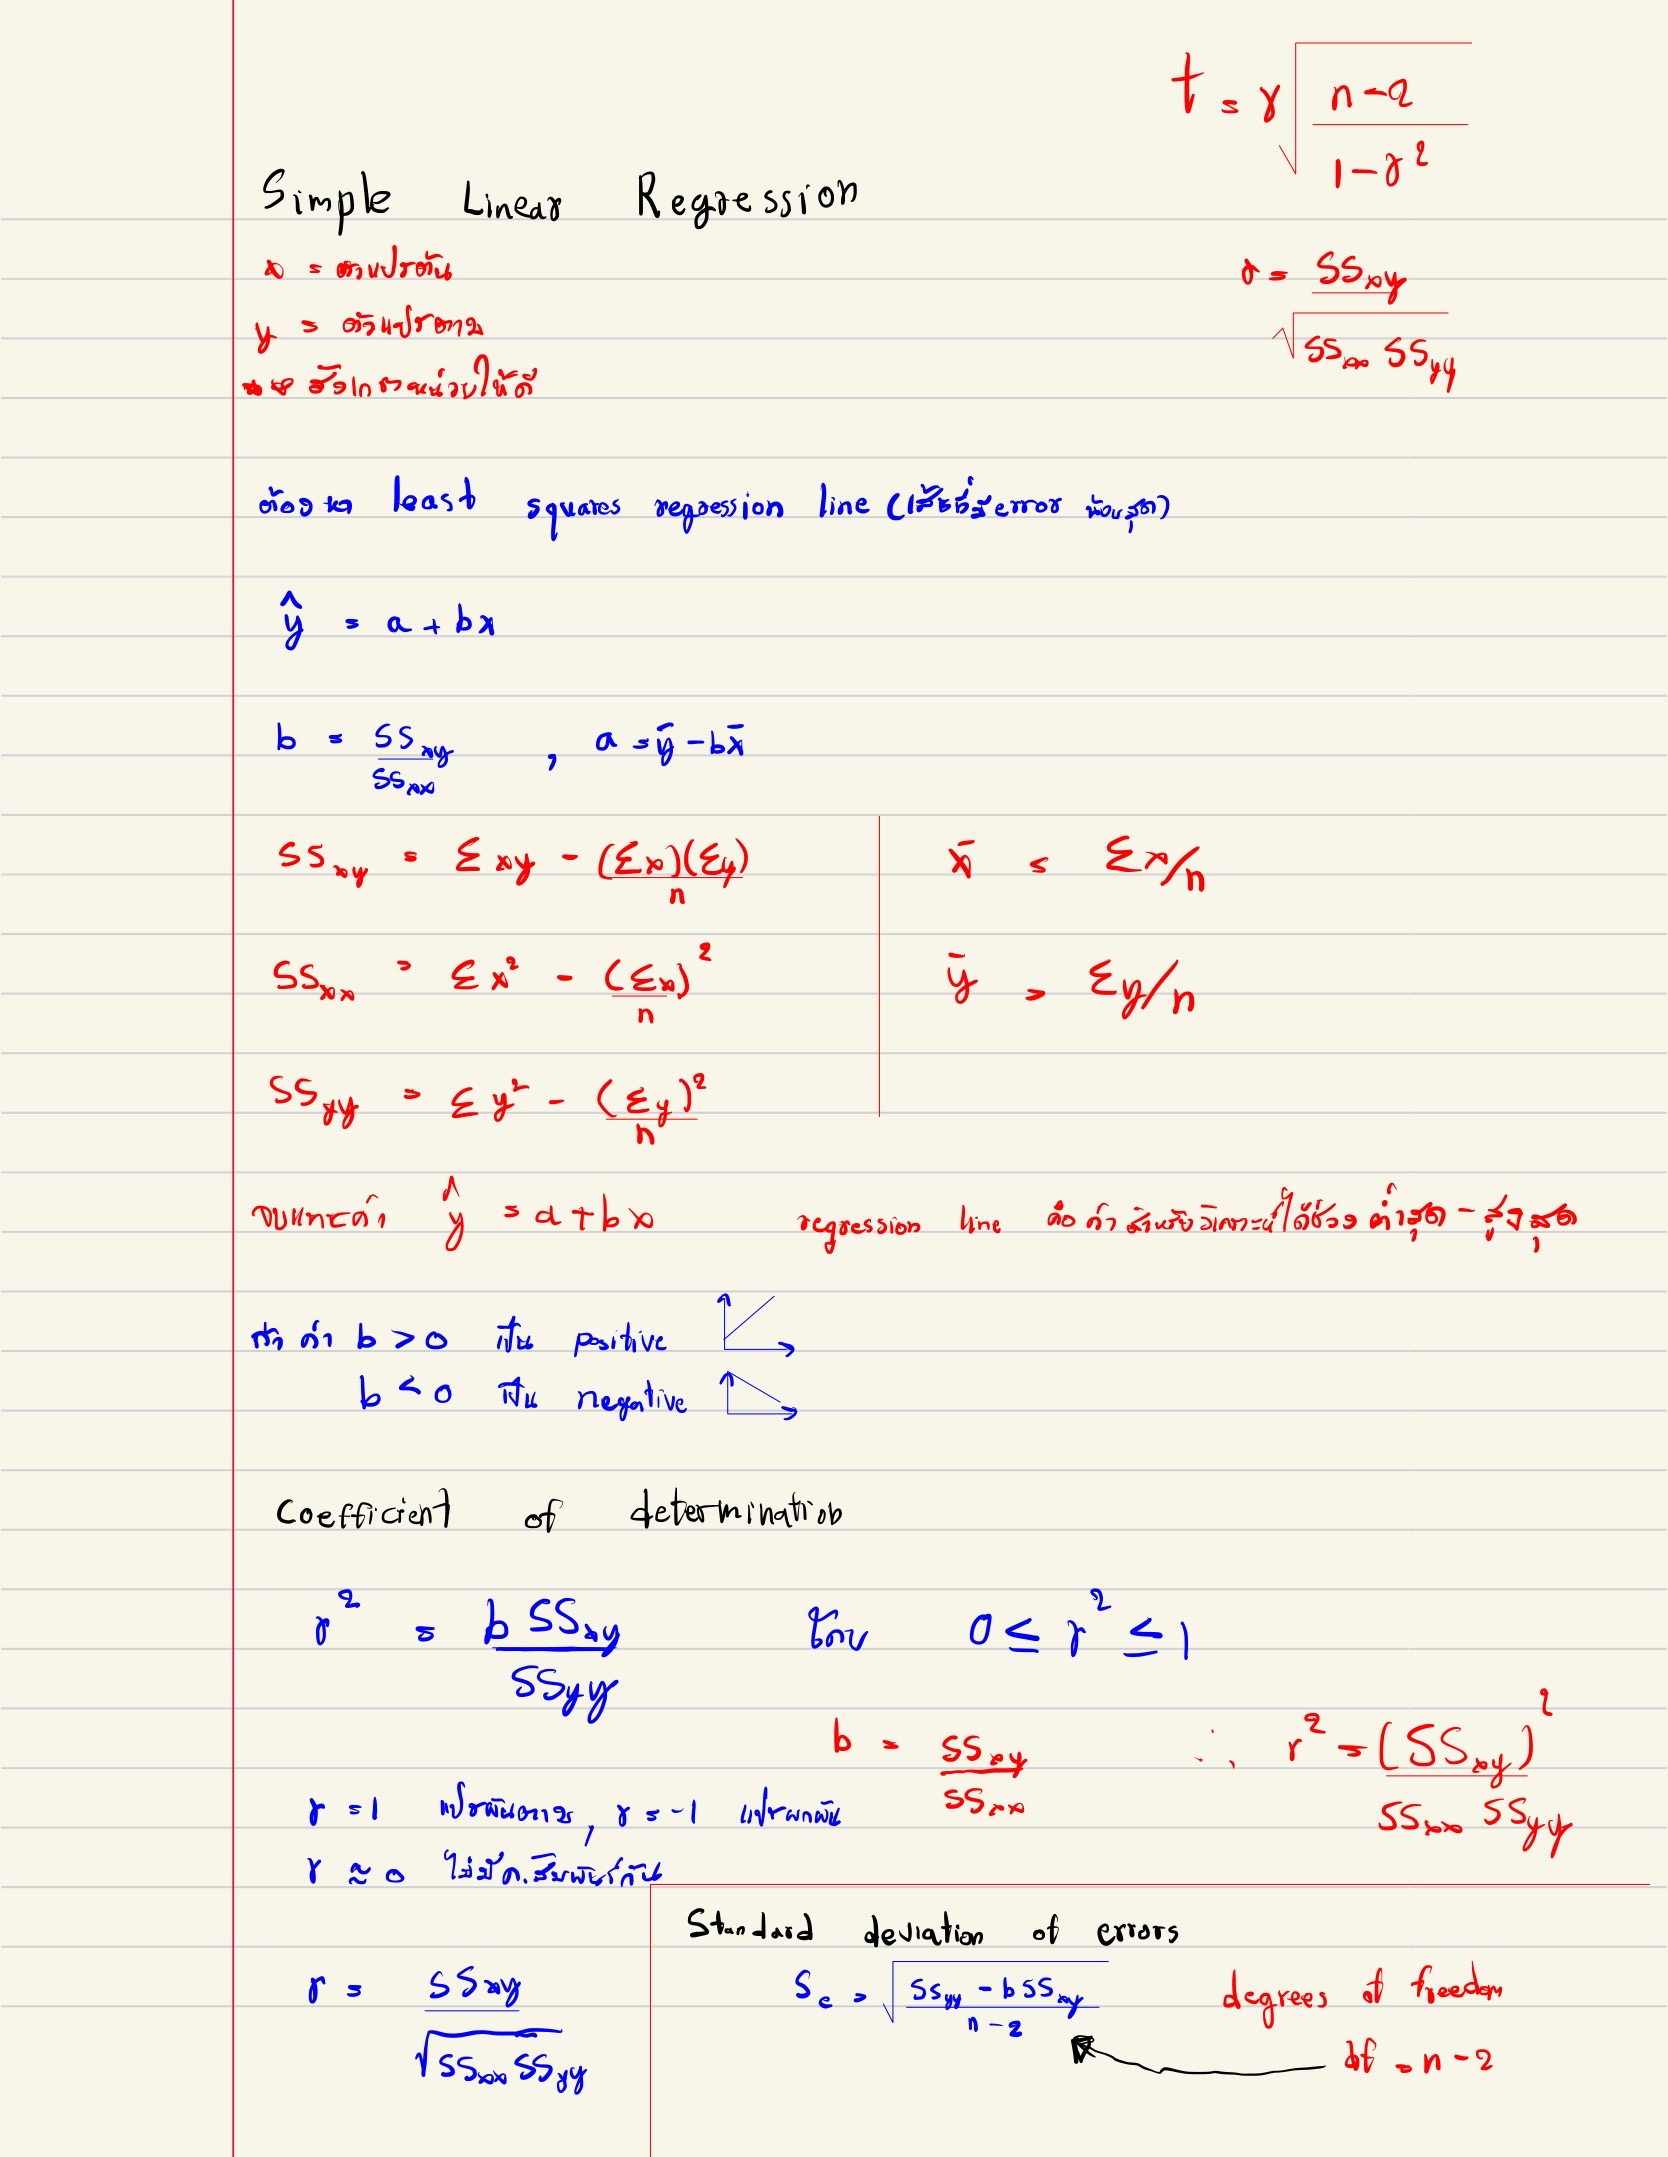 t = r √((n-2)/(1-r²))
Simple Linear Regression
x = ตัวแปรต้น
r = SSxy / √(SSxx SSyy)
y = ตัวแปรตาม
สังเกตหน่วยให้ดี
ต้องหา least squares regression line (เส้นที่มี error น้อยสุด)
ŷ = a + bx
b = SSxy / SSxx , a = ȳ - bx̄
SSxy = Σxy - (Σx)(Σy)/n
x̄ = Σx/n
SSxx = Σx² - (Σx)²/n
ȳ = Σy/n
SSyy = Σy² - (Σy)²/n
จบแทนค่า ŷ = a + bx regression line คือ ค่าสำหรับวิเคราะห์ได้ช่วง ต่ำสุด - สูงสุด
ถ้า ค่า b > 0 เป็น positive
b < 0 เป็น negative
Coefficient of determination
r² = b SSxy / SSyy โดย 0 ≤ r² ≤ 1
b = SSxy / SSxx ∴ r² = (SSxy)² / SSxx SSyy
r = 1 แปรผันตาม, r = -1 แปรผกผัน
r ≈ 0 ไม่มีค.สัมพันธ์กัน
Standard deviation of errors
r = SSxy / √(SSxx SSyy)
Se = √((SSyy - bSSxy)/(n-2))
degrees of freedom
df = n - 2